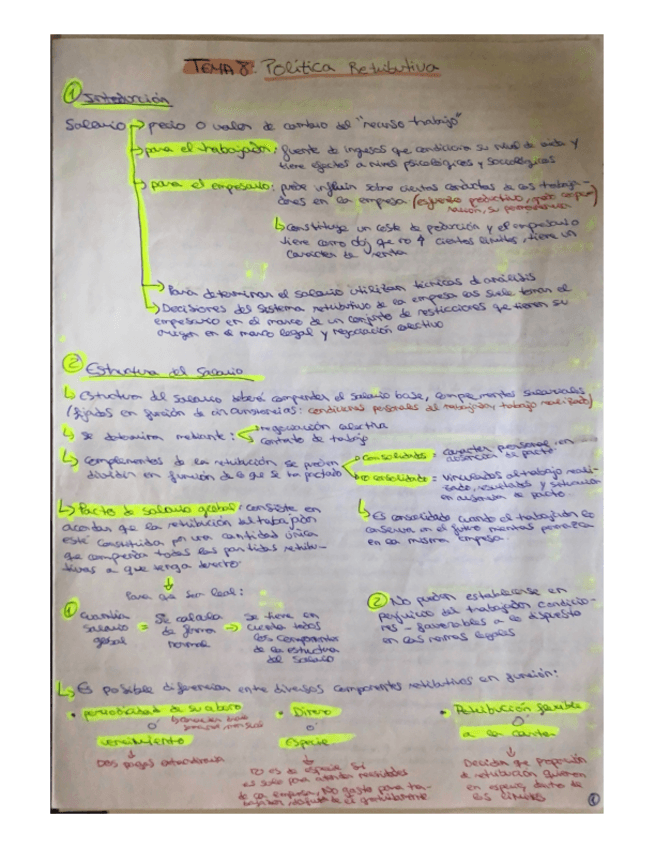 TEMA 8: Política Retributiva
① Introducción
Salario → precio o valor de cambio del "recurso trabajo"
→ para el trabajador: fuente de ingresos que condiciona su nivel de vida y
tiene efectos a nivel psicológicos y sociológicos
→ para el empresario: puede influir sobre ciertas conductas de los trabaja-
dores en la empresa (esfuerzo productivo, su permanencia
↳ Constituye un coste de producción y el empresario
tiene como obj que no ↑ ciertos límites, tiene un
carácter de renta
→ Para determinar el salario utilizan técnicas de análisis
→ Decisiones del sistema retributivo de la empresa las suele tomar el
empresario en el marco de un conjunto de restricciones que tienen su
origen en el marco legal y negociación colectiva
② Estructura del Salario
↳ Estructura del salario deberá comprender el salario base, complementos salariales
(fijados en función de circunstancias: condiciones personales del trabajador, trabajo realizado)
↳ Se determina mediante: negociación colectiva
contrato de trabajo
↳ Complementos de la retribución se pueden
dividir en función de lo que se ha pactado
Consolidados = carácter personal, en
ausencia de pacto
No consolidados = vinculados al trabajo reali-
zado, resultados y situación
en ausencia de pacto
↳ Es consolidado cuando el trabajador lo
conserva en el futuro mientras permanezca
en la misma empresa
↳ Pacto de salario global: consiste en
acordar que la retribución del trabajador
esté constituida por una cantidad única
que comprenda todas las partidas retribu-
tivas a que tenga derecho
↓
Para que sea legal:
① Cuantía salario global = Se calcula de forma normal → Se tiene en cuenta todos los componentes de la estructura del salario
② No puedan establecerse en
perjuicio del trabajador condicio-
nes - favorables a lo dispuesto
en las normas legales
↳ Es posible diferenciar entre diversos componentes retributivos en función:
• periodicidad de su abono
o
vencimiento
↓
Dos pagas extraordinarias
• Dinero
o
Especie
↓
No es de especie si
es solo para atender necesidades
de la empresa, No gasto para tra-
bajador,
• Retribución flexible
o
a la carta
↓
Decidir que proporción
de retribución quieren
en especie, dentro de
los límites
①